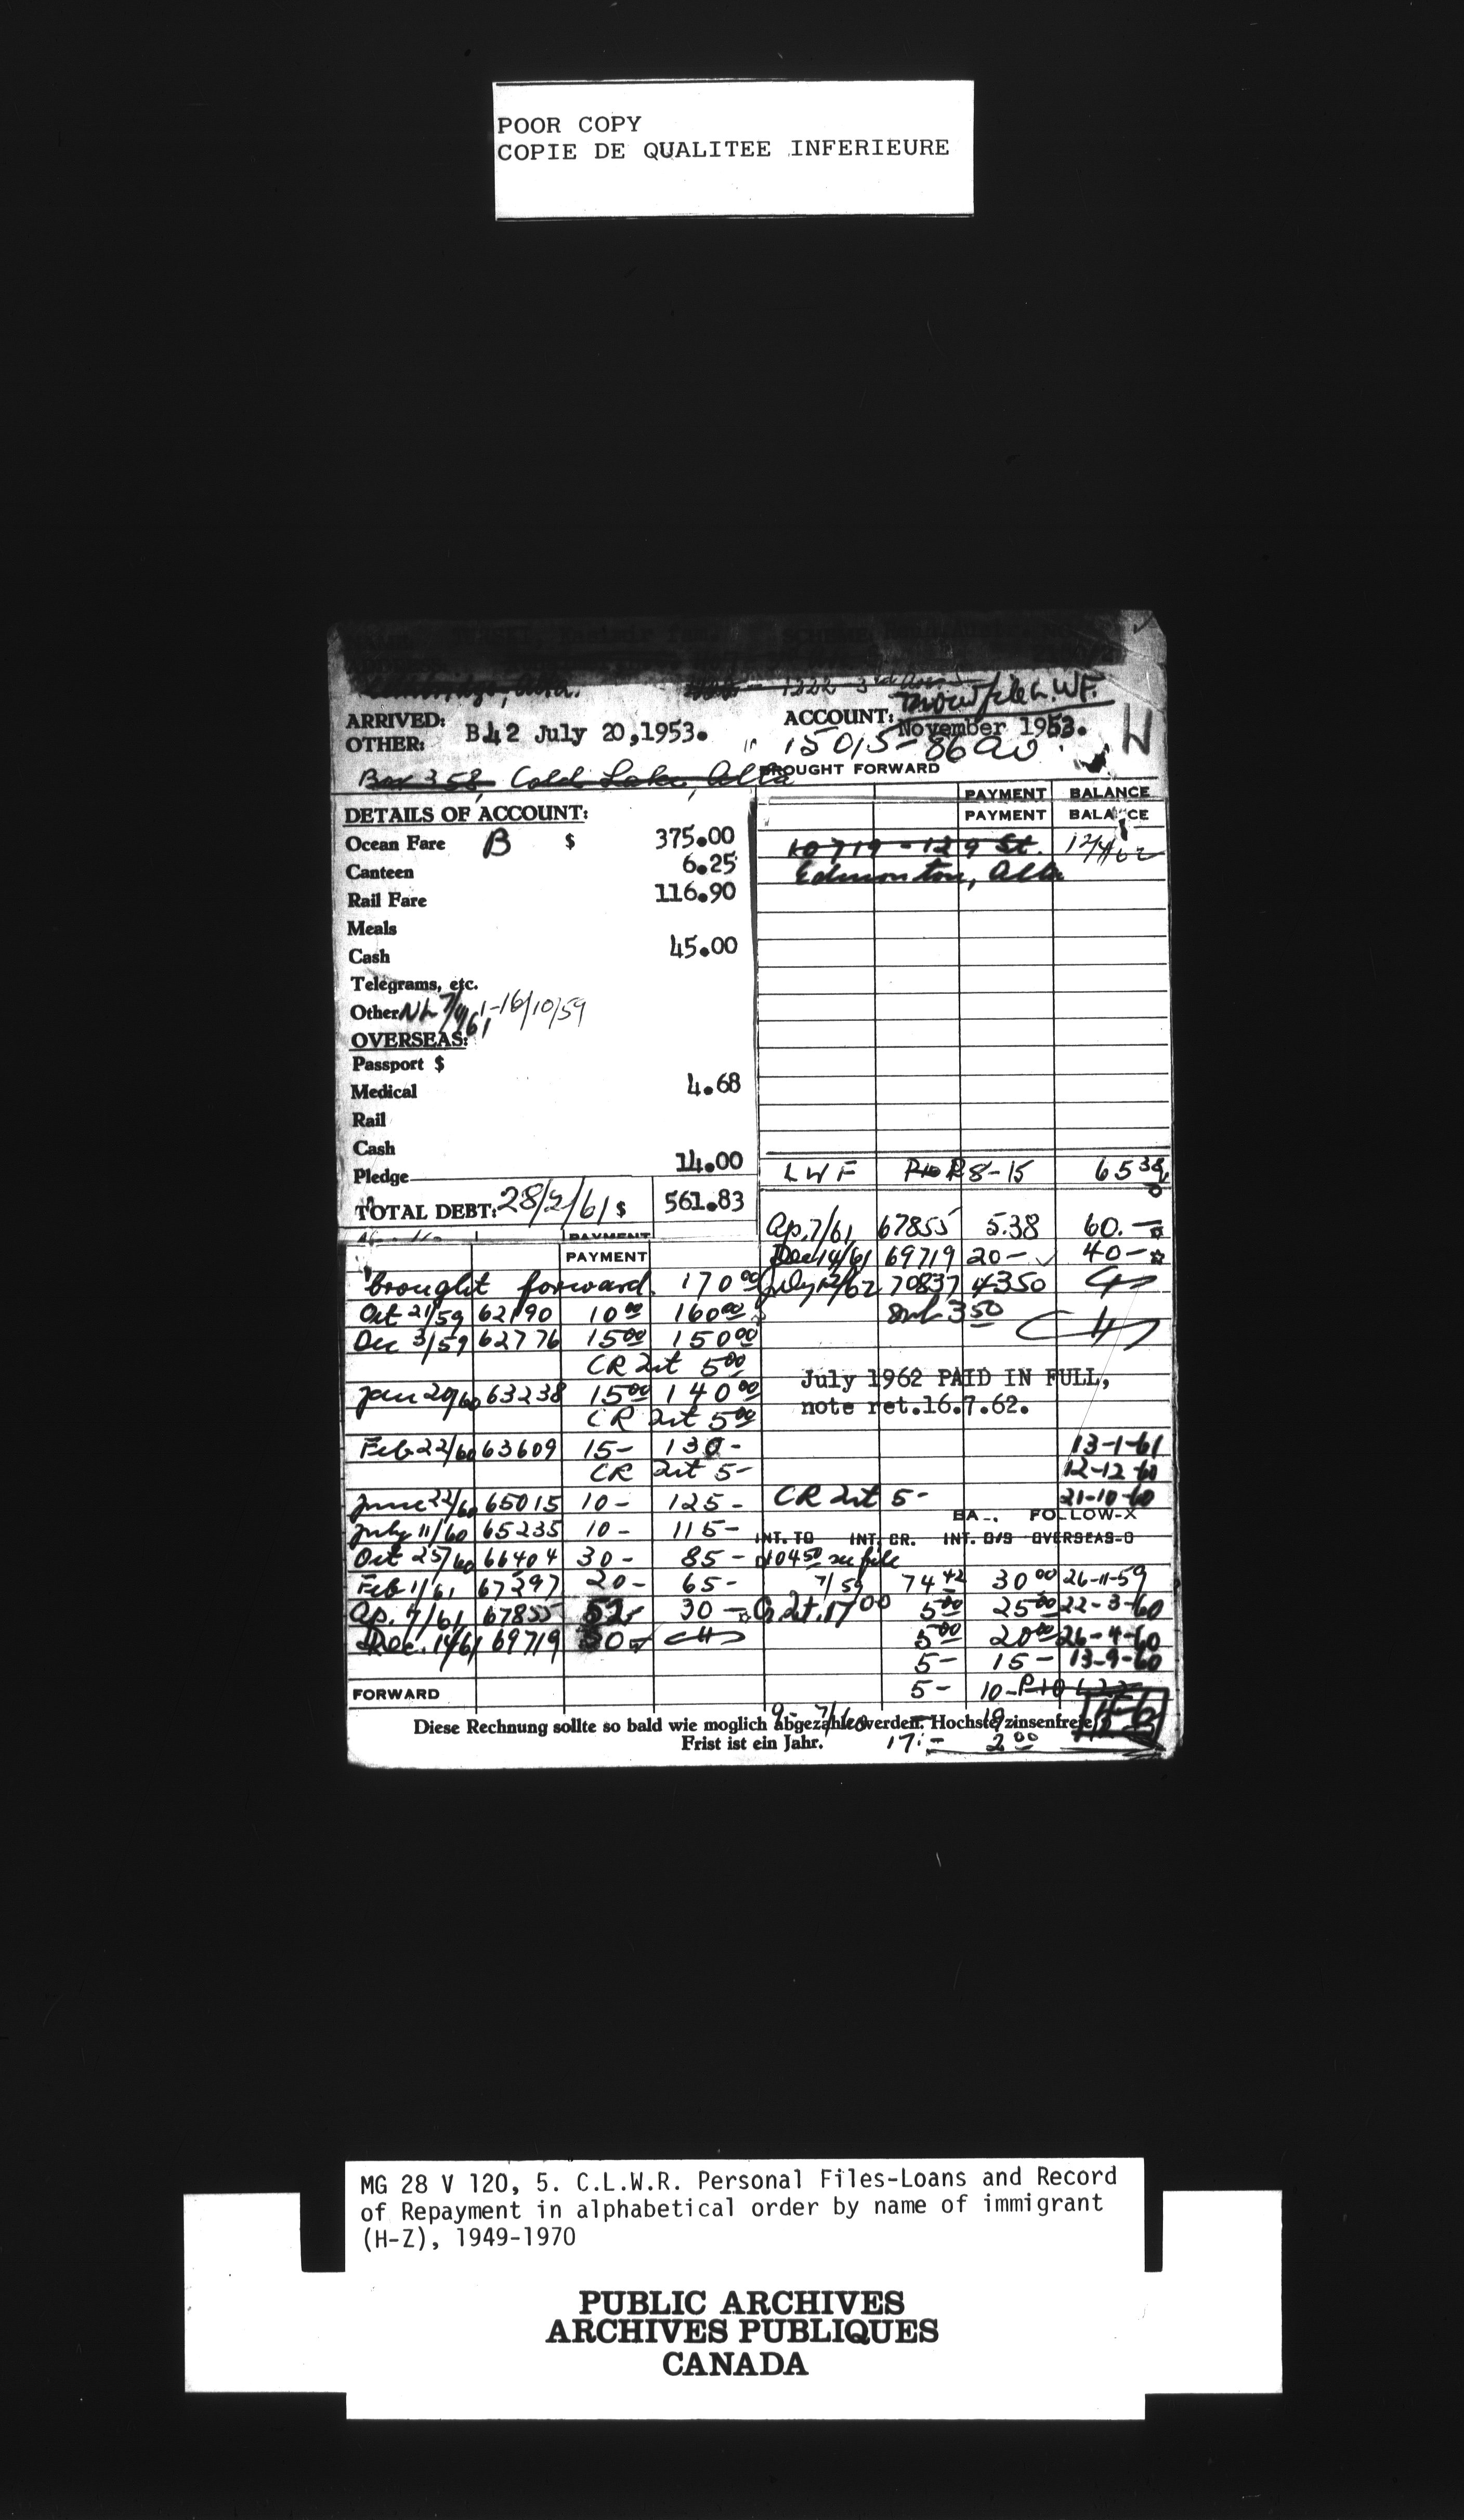 POOR COPY
COPIE DE QUALITEE INFERIEURE
fam.
Alta.
ARRIVED: B42 July 20,1953.
OTHER:
ACCOUNT: November 1953.
LWF.
15015-86
H
Box 358, Cold Lake, Alta
BROUGHT FORWARD
PAYMENT BALANCE
PAYMENT BALANCE
DETAILS OF ACCOUNT:
Ocean Fare B $ 375.00
Canteen 6.25
Rail Fare 116.90
Meals
Cash 45.00
Telegrams, etc.
Other NL 7/4/61 -16/10/59
OVERSEAS:
Passport $
Medical 4.68
Rail
Cash
Pledge 14.00
TOTAL DEBT: 28/2/61 $ 561.83
10719 - 129 St.
Edmonton, Alta
PAYMENT
PAYMENT
brought forward. 170 00
Oct 21/59 62190 10 00 160 00
Dec 3/59 62776 15 00 150 00
CR Int 5 00
Jan 20/60 63238 15 00 140 00
CR Int 5 00
Feb 22/60 63609 15- 130-
CR Int 5-
June 22/60 65015 10- 125-
July 11/60 65235 10- 115-
Oct 25/60 66404 30- 85-
Feb 1/61 67297 20- 65-
Ap. 7/61 67855 30-
Dec. 14/61 69719
FORWARD
LWF 8-15 65 38
Ap. 7/61 67855 5.38 60.-
Dec 14/61 69719 20- 40-
July 12/62 70837 4350
Int 3 50
July 1962 PAID IN FULL,
note ret.16.7.62.
13-1-61
12-12-60
CR Int 5- 21-10-60
BA-, FOLLOW-X
INT. TO INT. CR. INT. O/S OVERSEAS-O
104 50 see file
7/59 74 42 30 00 26-11-59
Cr Int. 17 00 5 00 25 00 22-3-60
5 00 20 00 26-4-60
5- 15- 13-9-60
5- 10-
Diese Rechnung sollte so bald wie moglich abgezahlt werden. Hochste zinsenfreie
Frist ist ein Jahr. 17.- 2 00
MG 28 V 120, 5. C.L.W.R. Personal Files-Loans and Record
of Repayment in alphabetical order by name of immigrant
(H-Z), 1949-1970
PUBLIC ARCHIVES
ARCHIVES PUBLIQUES
CANADA